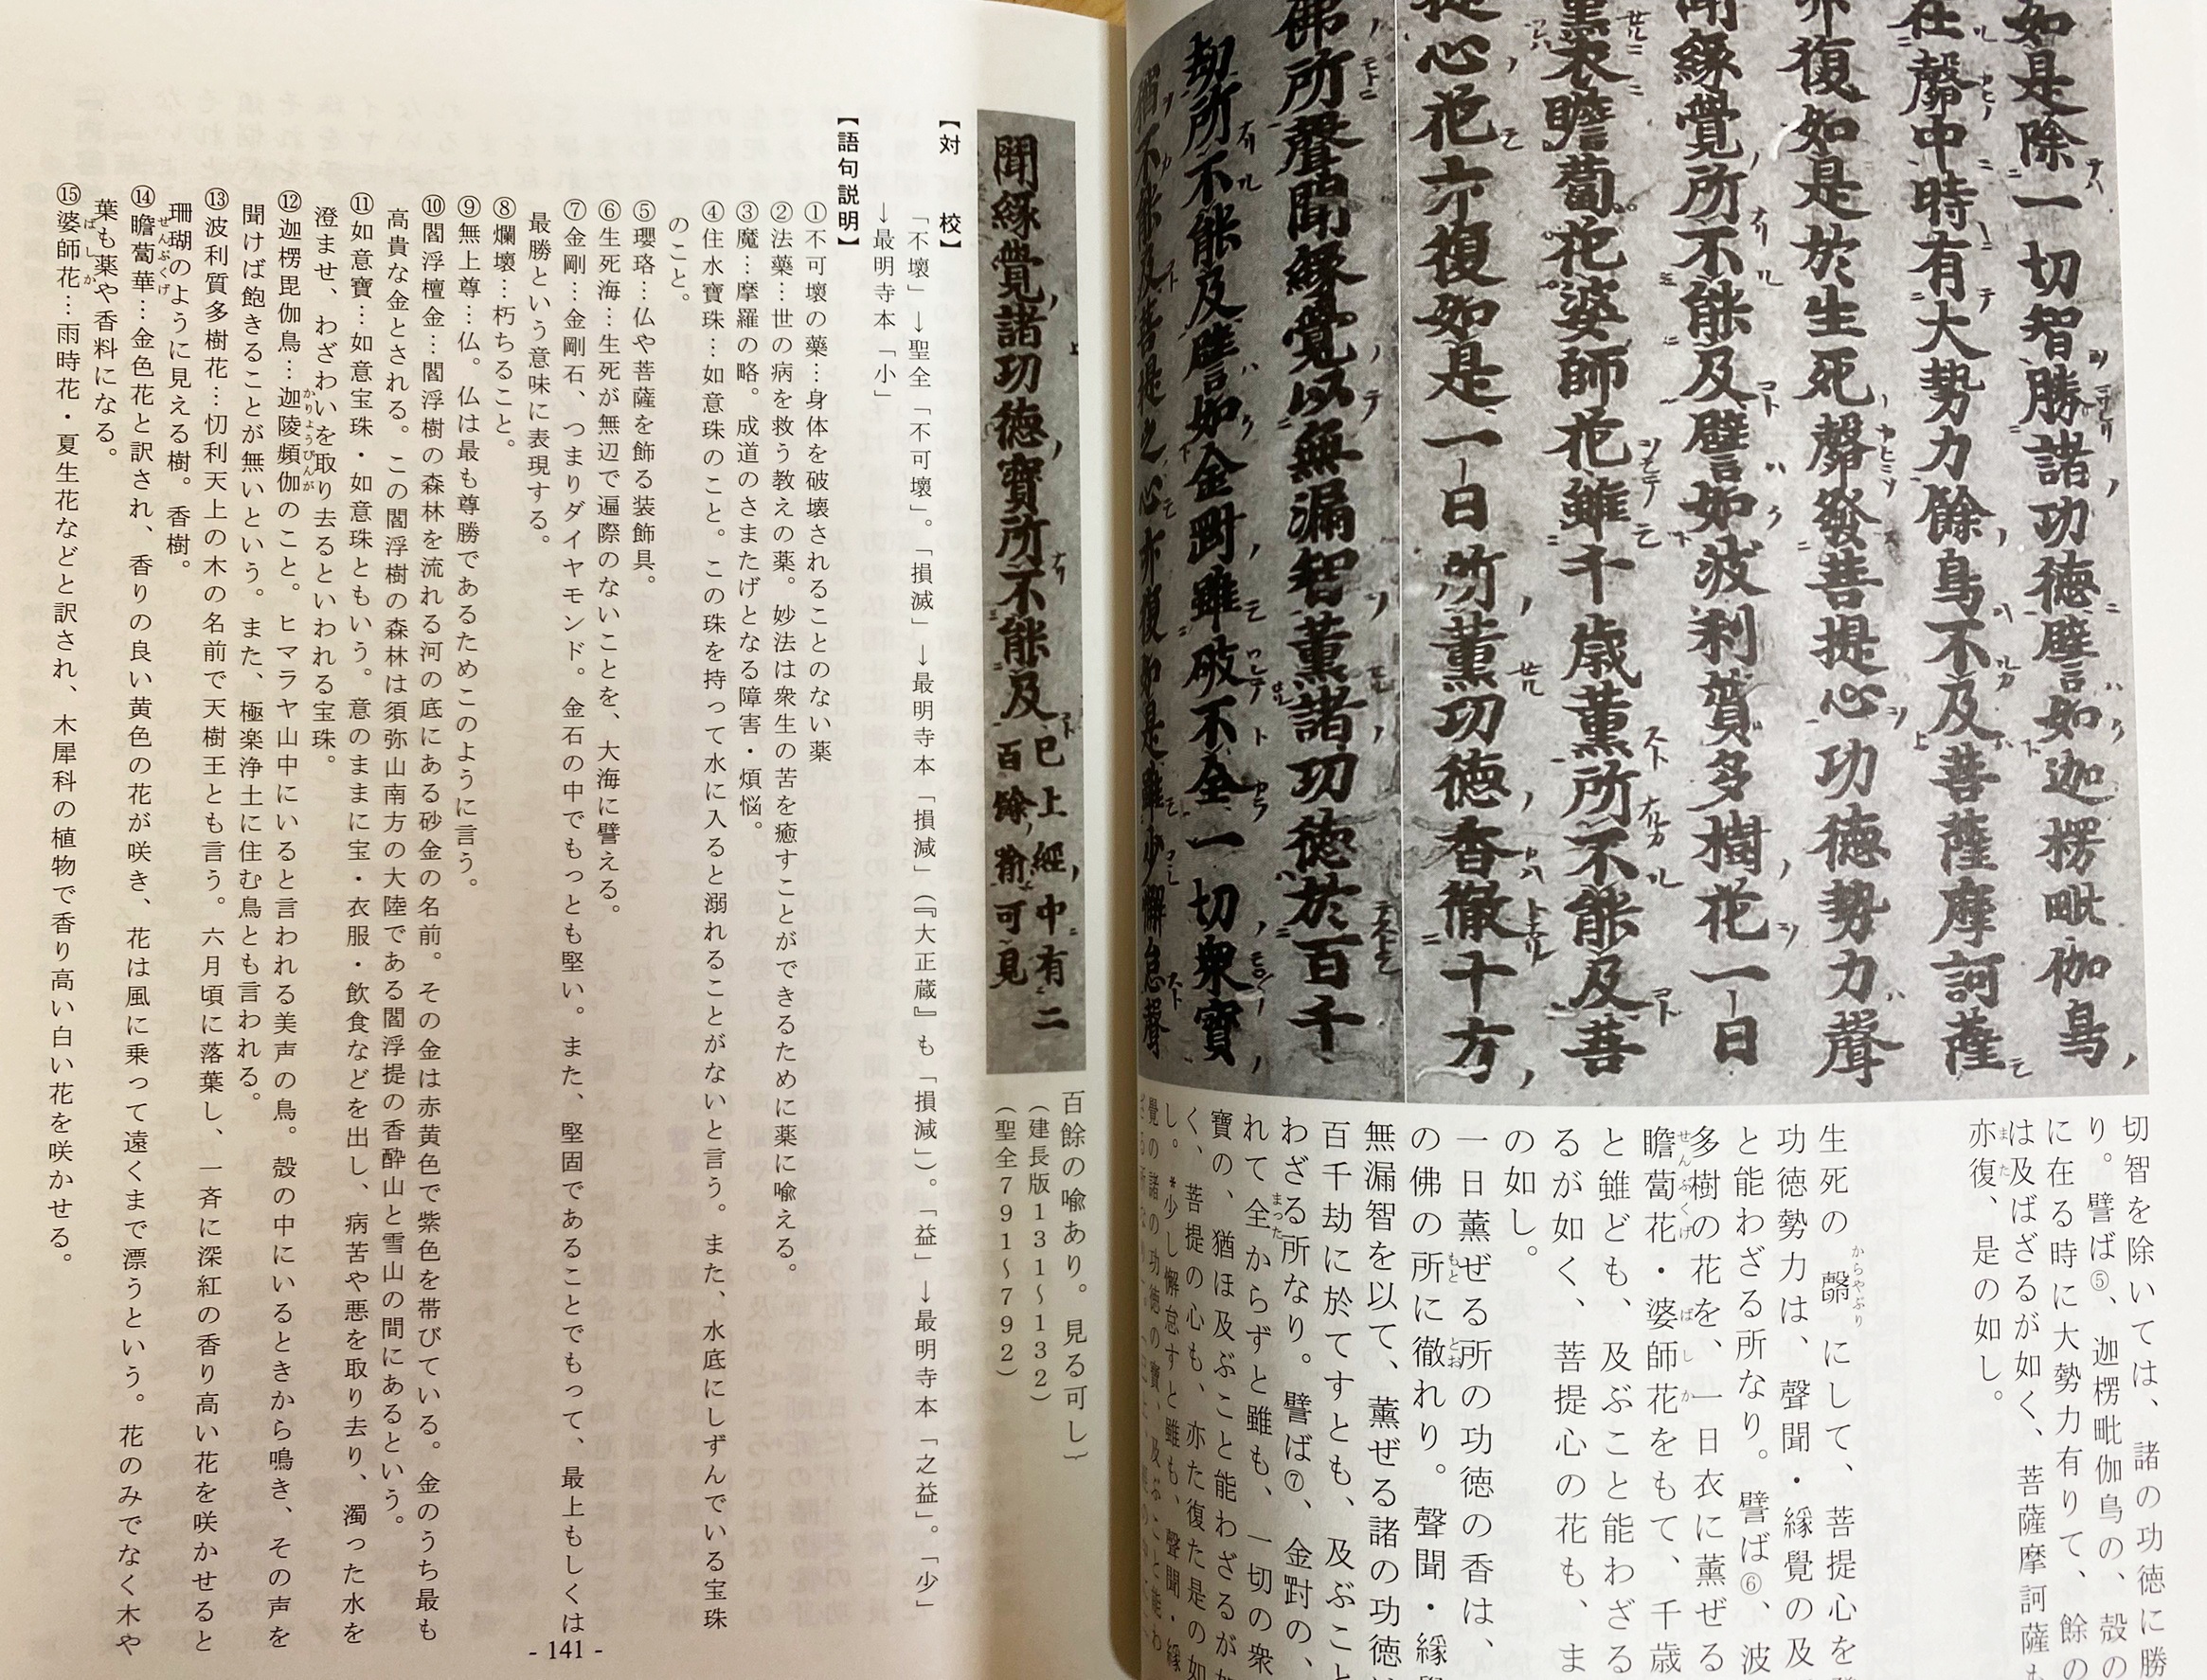 如是除一切智勝諸功德譬如迦楞毗伽鳥
在㲉中時有大勢力餘鳥不及菩薩摩訶薩
亦復如是於生死㲉發菩提心功德勢力聲
聞縁覺所不能及譬如波利質多樹花一日
薫衣瞻蔔花婆師花雖千歳薫所不能及菩
提心花亦復如是一日所薫功徳香徹十方
佛所聲聞縁覺以無漏智薫諸功徳於百千
劫所不能及譬如金剛雖破不全一切衆寶
猶不能及菩提之心亦復如是雖少懈怠聲
切智を除いては、諸の功徳に勝
り。譬ば⑤、迦楞毗伽鳥の、殻の
に在る時に大勢力有りて、餘の
は及ばざるが如く、菩薩摩訶薩も
亦復、是の如し。
生死の㲉にして、菩提心を
功徳勢力は、聲聞・縁覺の及
と能わざる所なり。譬ば⑥、波
多樹の花を、一日衣に薫ぜる
瞻蔔花・婆師花をもて、千歳
と雖ども、及ぶこと能わざる
るが如く、菩提心の花も、ま
の如し。
一日薫ぜる所の功徳の香は、
の佛の所に徹れり。聲聞・縁覺
無漏智を以て、薫ぜる諸の功徳
百千劫に於てすとも、及ぶこと
わざる所なり。譬ば⑦、金剛の、
れて全からずと雖も、一切の衆
寶の、猶ほ及ぶこと能わざるが
く、菩提の心も、亦た復た是の如
し。*少し懈怠すと雖も、聲聞・縁
覺の諸の功徳の寶、及ぶこと能わ
聞縁覺諸功徳寶所不能及
已上經中有二
百餘喩可見
百餘の喩あり。見る可し〕
(建長版131〜132)
(聖全791〜792)
【対　校】
「不壊」→聖全「不可壊」。「損滅」→最明寺本「損減」(『大正蔵』も「損減」)。「益」→最明寺本「之益」。「少」
→最明寺本「小」
【語句説明】
①不可壊の薬…身体を破壊されることのない薬
②法薬…世の病を救う教えの薬。妙法は衆生の苦を癒すことができるために薬に喩える。
③魔…摩羅の略。成道のさまたげとなる障害・煩悩。
④住水寶珠…如意珠のこと。この珠を持って水に入ると溺れることがないと言う。また、水底にしずんでいる宝珠
のこと。
⑤瓔珞…仏や菩薩を飾る装飾具。
⑥生死海…生死が無辺で遍際のないことを、大海に譬える。
⑦金剛…金剛石、つまりダイヤモンド。金石の中でもっとも堅い。また、堅固であることでもって、最上もしくは
最勝という意味に表現する。
⑧爛壊…朽ちること。
⑨無上尊…仏。仏は最も尊勝であるためこのように言う。
⑩閻浮檀金…閻浮樹の森林を流れる河の底にある砂金の名前。その金は赤黄色で紫色を帯びている。金のうち最も
高貴な金とされる。この閻浮樹の森林は須弥山南方の大陸である閻浮提の香酔山と雪山の間にあるという。
⑪如意寶…如意宝珠・如意珠ともいう。意のままに宝・衣服・飲食などを出し、病苦や悪を取り去り、濁った水を
澄ませ、わざわいを取り去るといわれる宝珠。
⑫迦楞毘伽鳥…迦陵頻伽のこと。ヒマラヤ山中にいると言われる美声の鳥。殻の中にいるときから鳴き、その声を
聞けば飽きることが無いという。また、極楽浄土に住む鳥とも言われる。
⑬波利質多樹花…忉利天上の木の名前で天樹王とも言う。六月頃に落葉し、一斉に深紅の香り高い花を咲かせると
珊瑚のように見える樹。香樹。
⑭瞻蔔華…金色花と訳され、香りの良い黄色の花が咲き、花は風に乗って遠くまで漂うという。花のみでなく木や
葉も薬や香料になる。
⑮婆師花…雨時花・夏生花などと訳され、木犀科の植物で香り高い白い花を咲かせる。
- 141 -